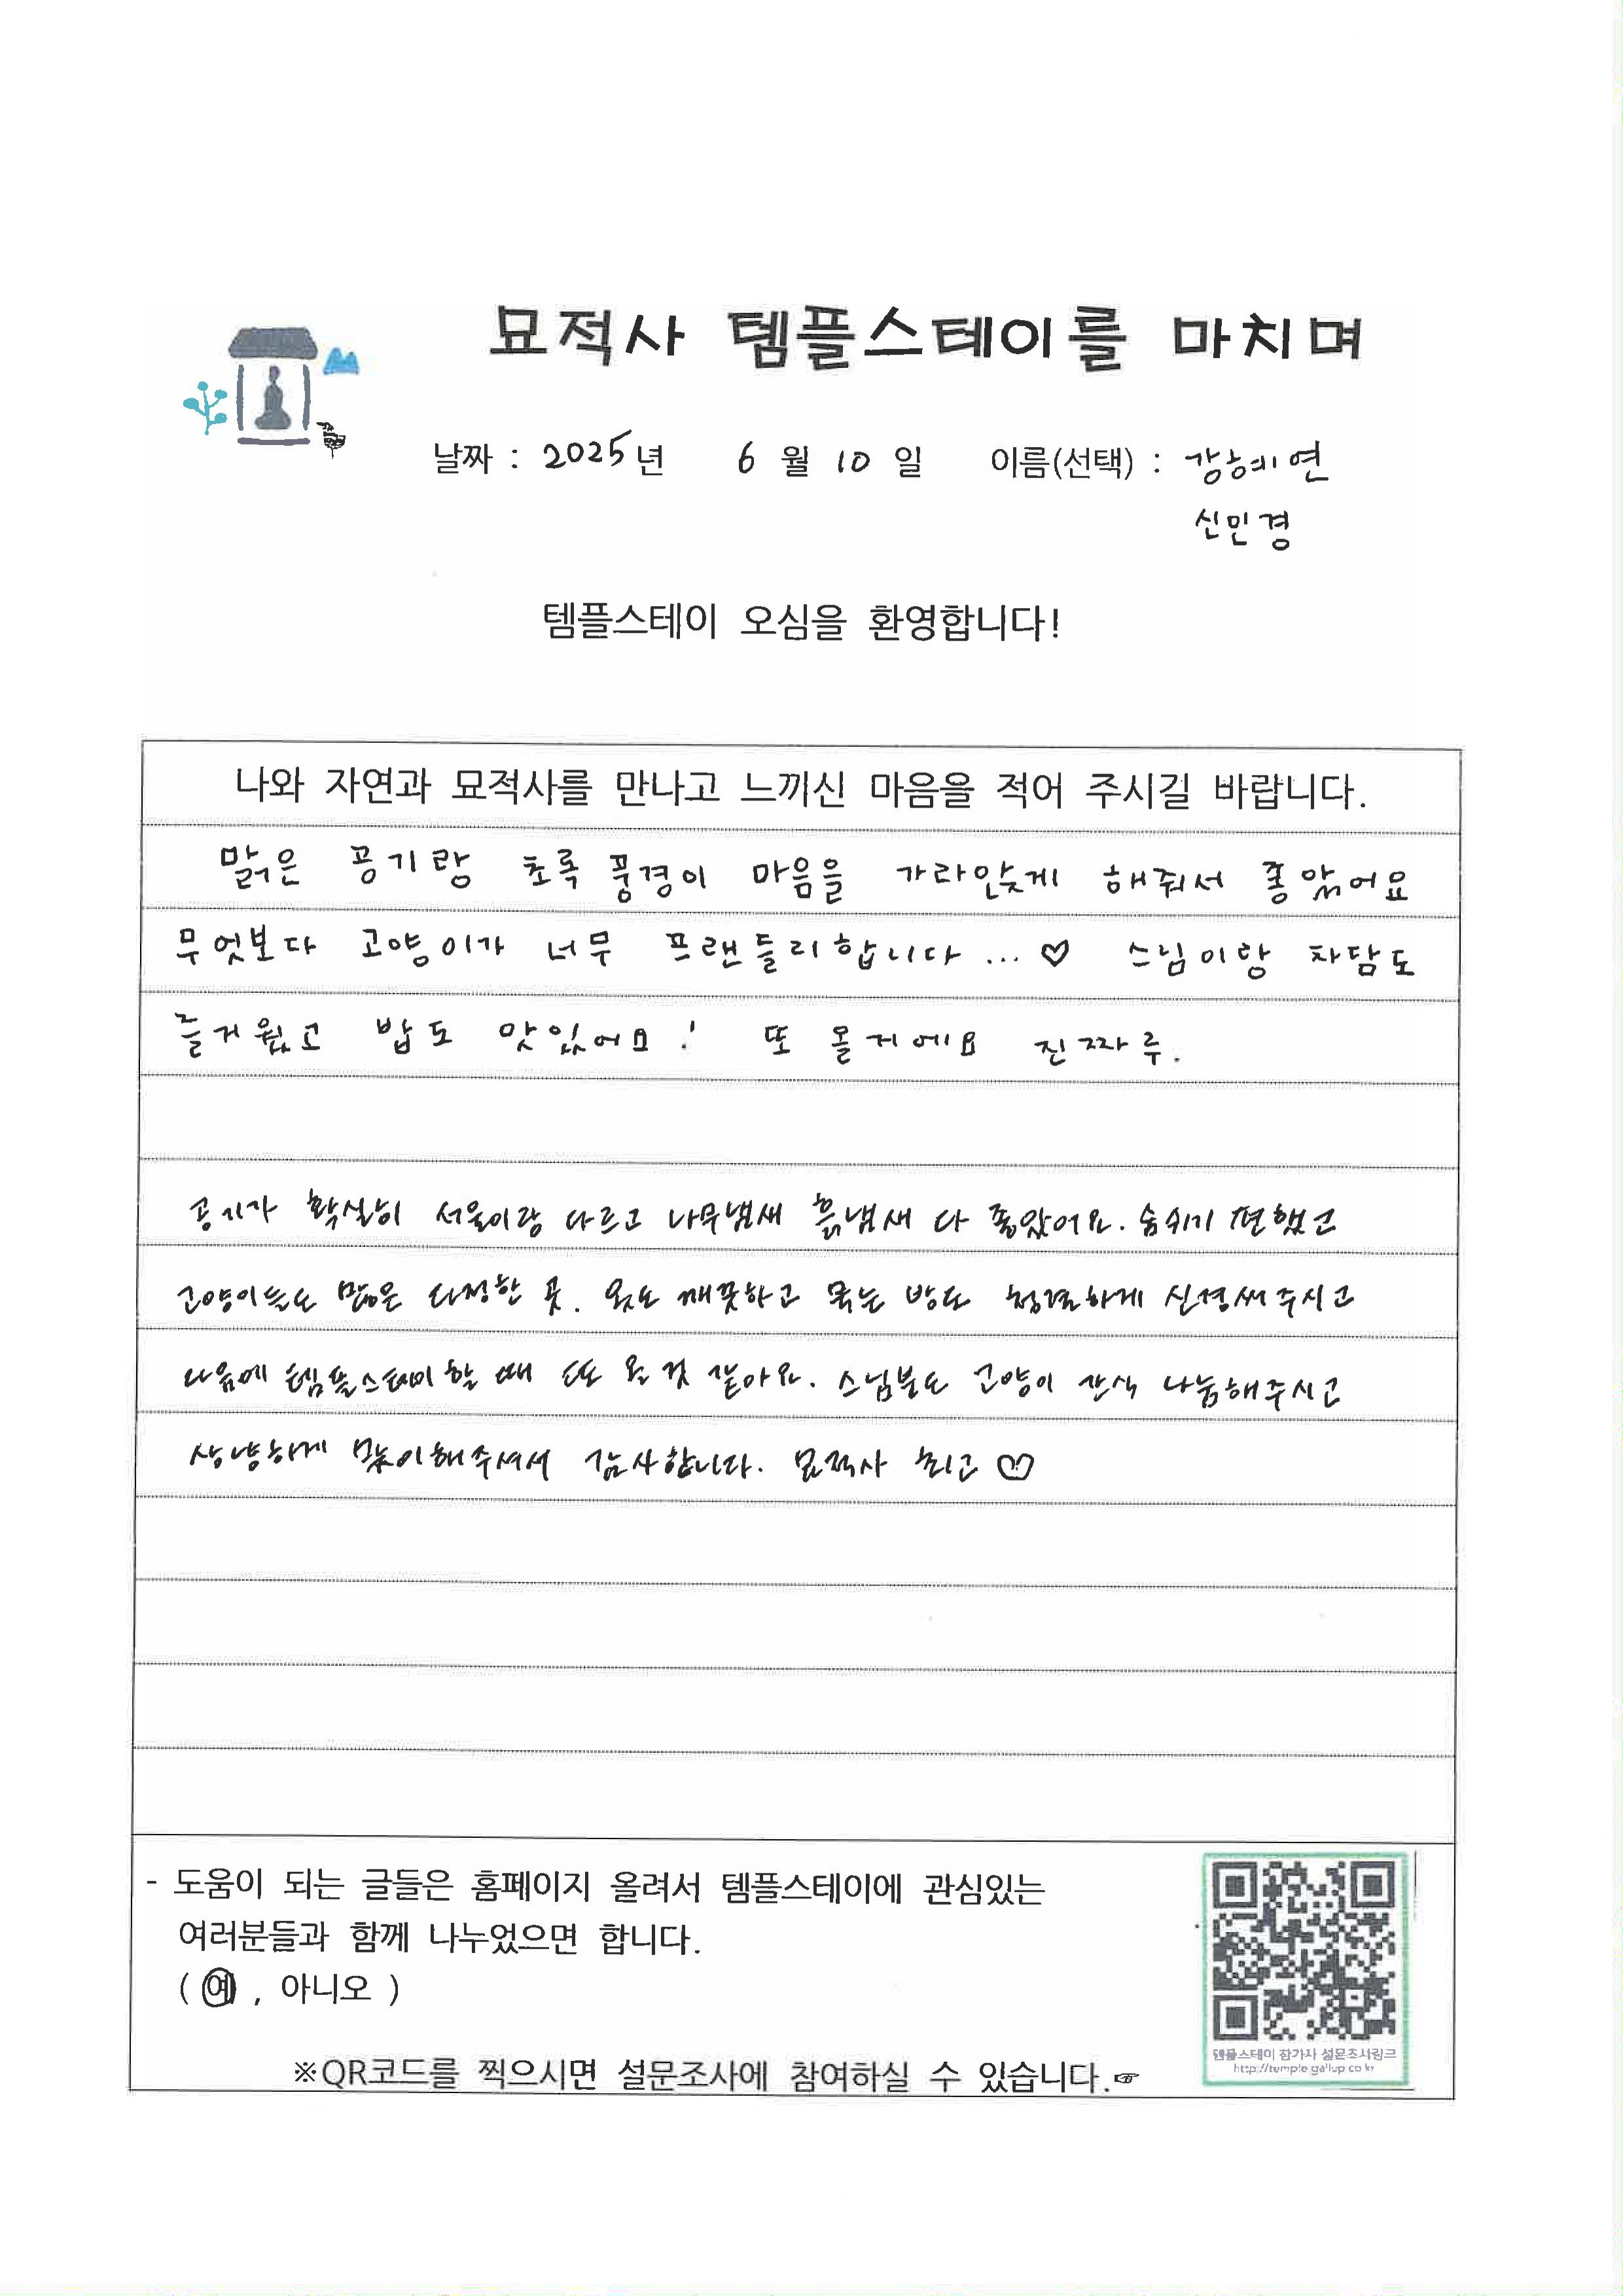 묘적사 템플스테이를 마치며
날짜 : 2025년 6월 10일 이름(선택) : 강혜연
신민경
템플스테이 오심을 환영합니다!
나와 자연과 묘적사를 만나고 느끼신 마음을 적어 주시길 바랍니다.
맑은 공기랑 초록 풍경이 마음을 가라앉게 해줘서 좋았어요
무엇보다 고양이가 너무 프랜들리합니다... ♡ 스님이랑 차담도
즐거웠고 밥도 맛있어요! 또 올거에요 진짜루.
공기가 확실히 서울이랑 다르고 나무냄새 흙냄새 다 좋았어요. 숨쉬기 편했고
고양이들도 많은 다정한 곳. 옷도 깨끗하고 묵는 방도 청결하게 신경써주시고
다음에 템플스테이할 때 또 올 것 같아요. 스님분도 고양이 간식 나눔해주시고
상냥하게 맞이해주셔서 감사합니다. 묘적사 최고 ♡
- 도움이 되는 글들은 홈페이지 올려서 템플스테이에 관심있는
여러분들과 함께 나누었으면 합니다.
( 예 , 아니오 )
※QR코드를 찍으시면 설문조사에 참여하실 수 있습니다.☞
템플스테이 참가자 설문조사링크
http://temple.gallup.co.kr